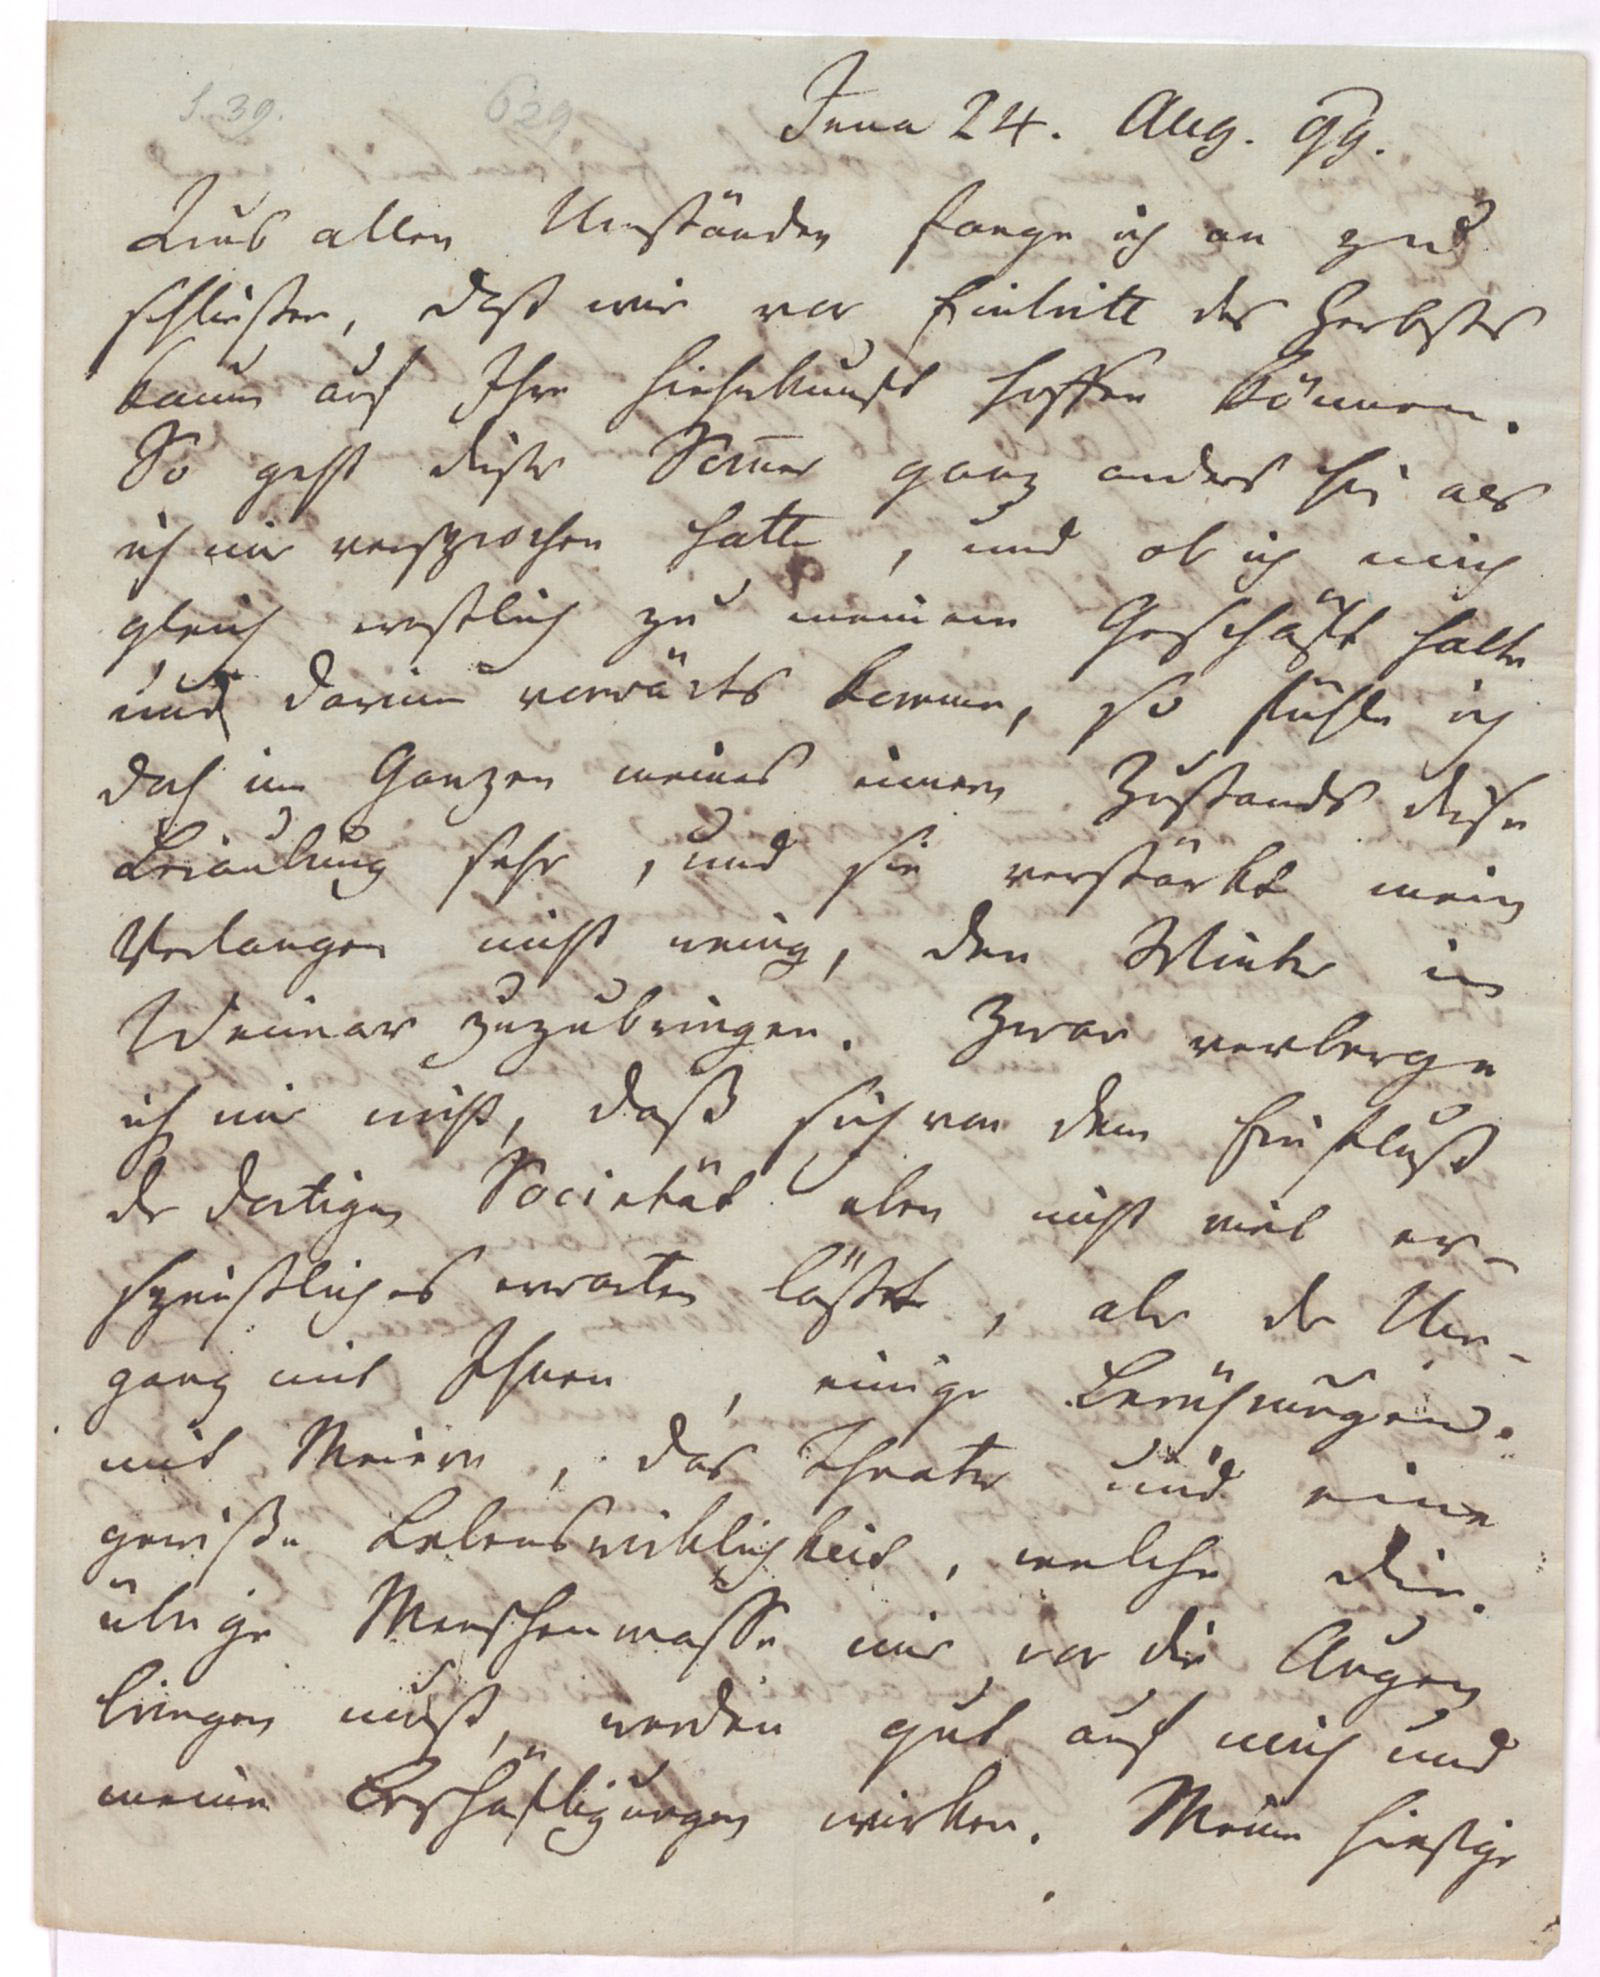 S. 39. 629
Jena 24. Aug. 99.
Aus allen Umständen fange ich an zu
schließen, daß wir vor Eintritt des Herbstes
kaum auf Ihre Hieherkunft hoffen können.
So geht dieser Som̅er ganz anders hin als
ich mir versprochen hatte, und ob ich mich
gleich ernstlich zu meinem Geschäft halte
und darinn vorwärts komme, so fühle ich
doch im Ganzen meines innern Zustands diese
Beraubung sehr, und sie verstärkt mein
Verlangen nicht wenig, den Winter in
Weimar zuzubringen. Zwar verberge
ich mir nicht, daß sich von dem Einfluß
der dortigen Societät eben nicht viel er-
sprießliches erwarten läßt, aber der Um-
gang mit Ihnen, einige Berührungen
mit Meiern, das Theater und eine
gewiße Lebenswirklichkeit, welche die
übrige Menschenmasse mir vor die Augen
bringen muß, werden gut auf mich und
meine Beschäftigungen wirken. Meine hiesige